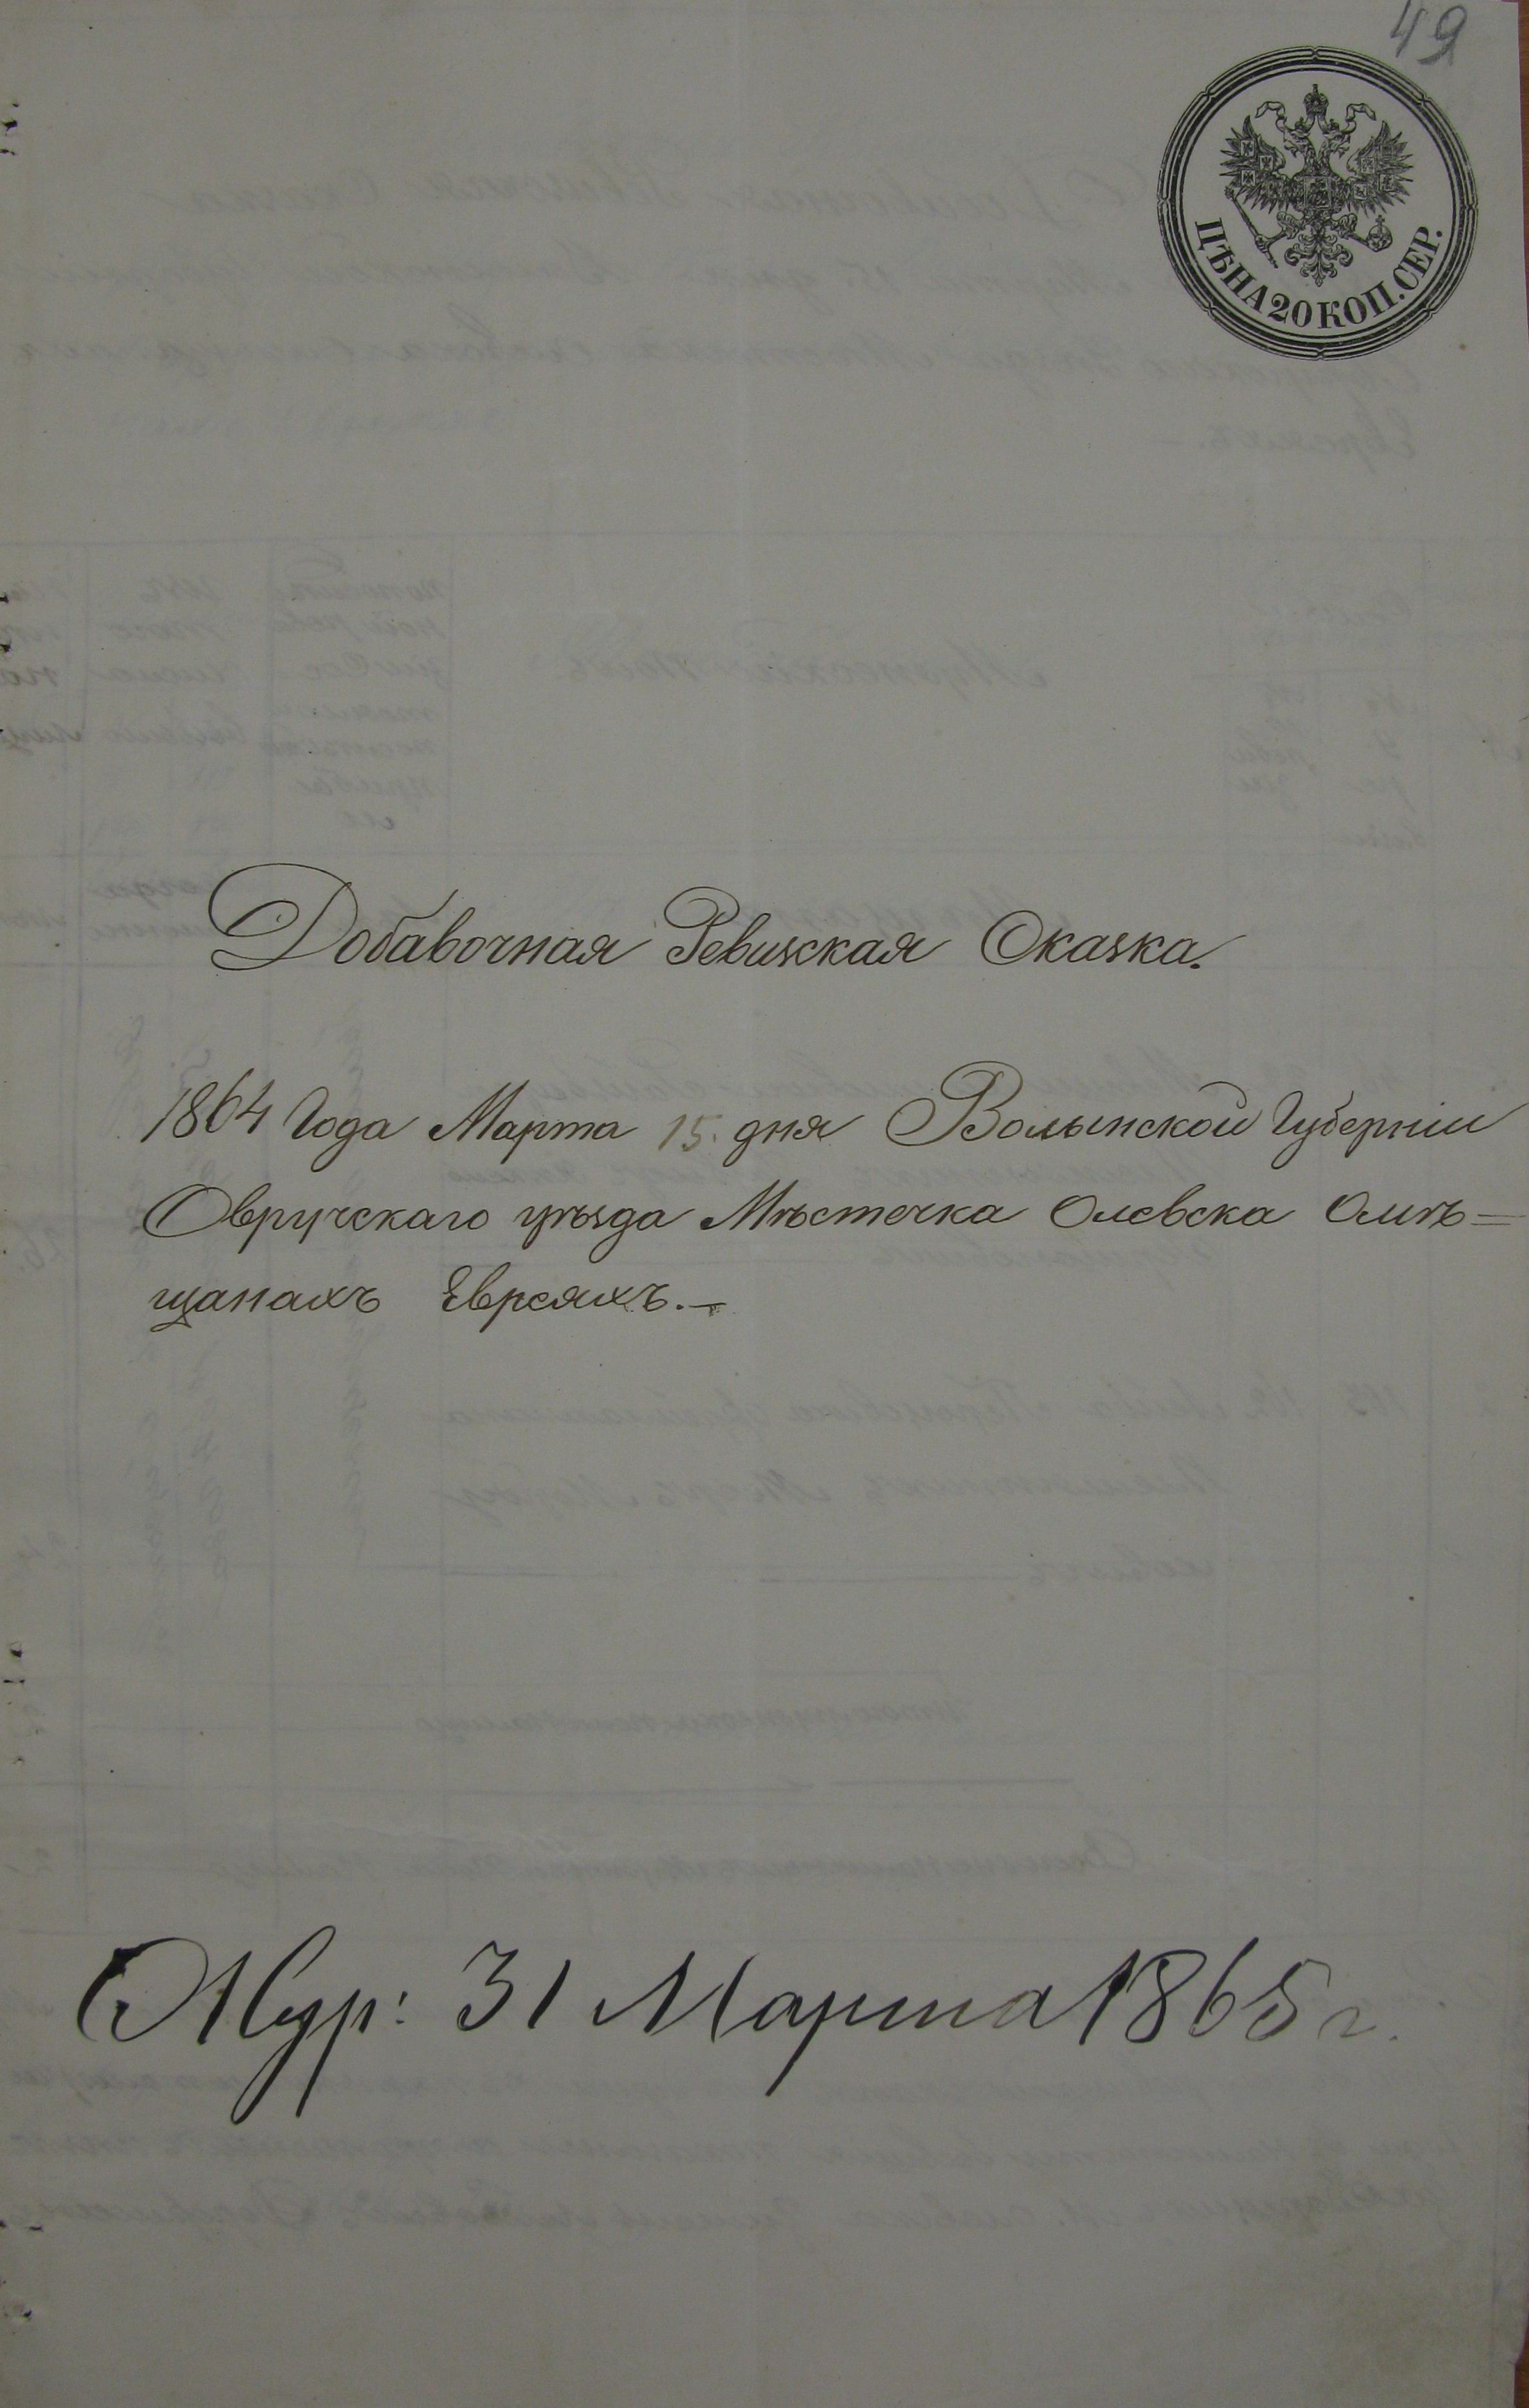 49
ЦѢНА 20 КОП. СЕР.
Добавочная Ревизская Сказка.
1864 Года Марта 15. дня Волынской Губерніи
Овручскаго уѣзда Мѣстечка Олевска Омѣ=
щанахъ Евреяхъ.—
Жур: 31 Марта 1865 г.